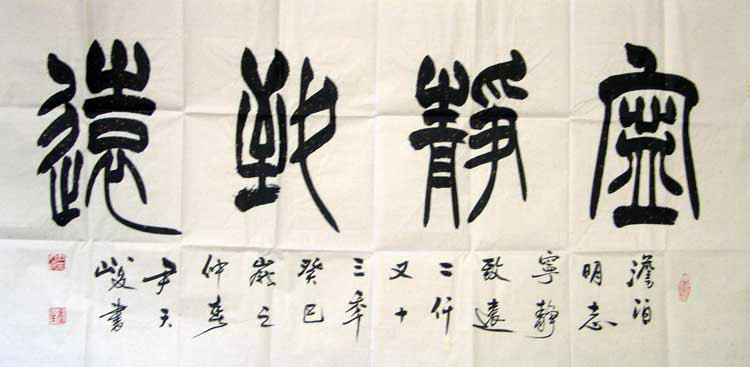 寧靜致遠
澹泊
明志
寧靜
致遠
二仟
又十
三年
癸巳
歲之
仲春
尹天
峻書